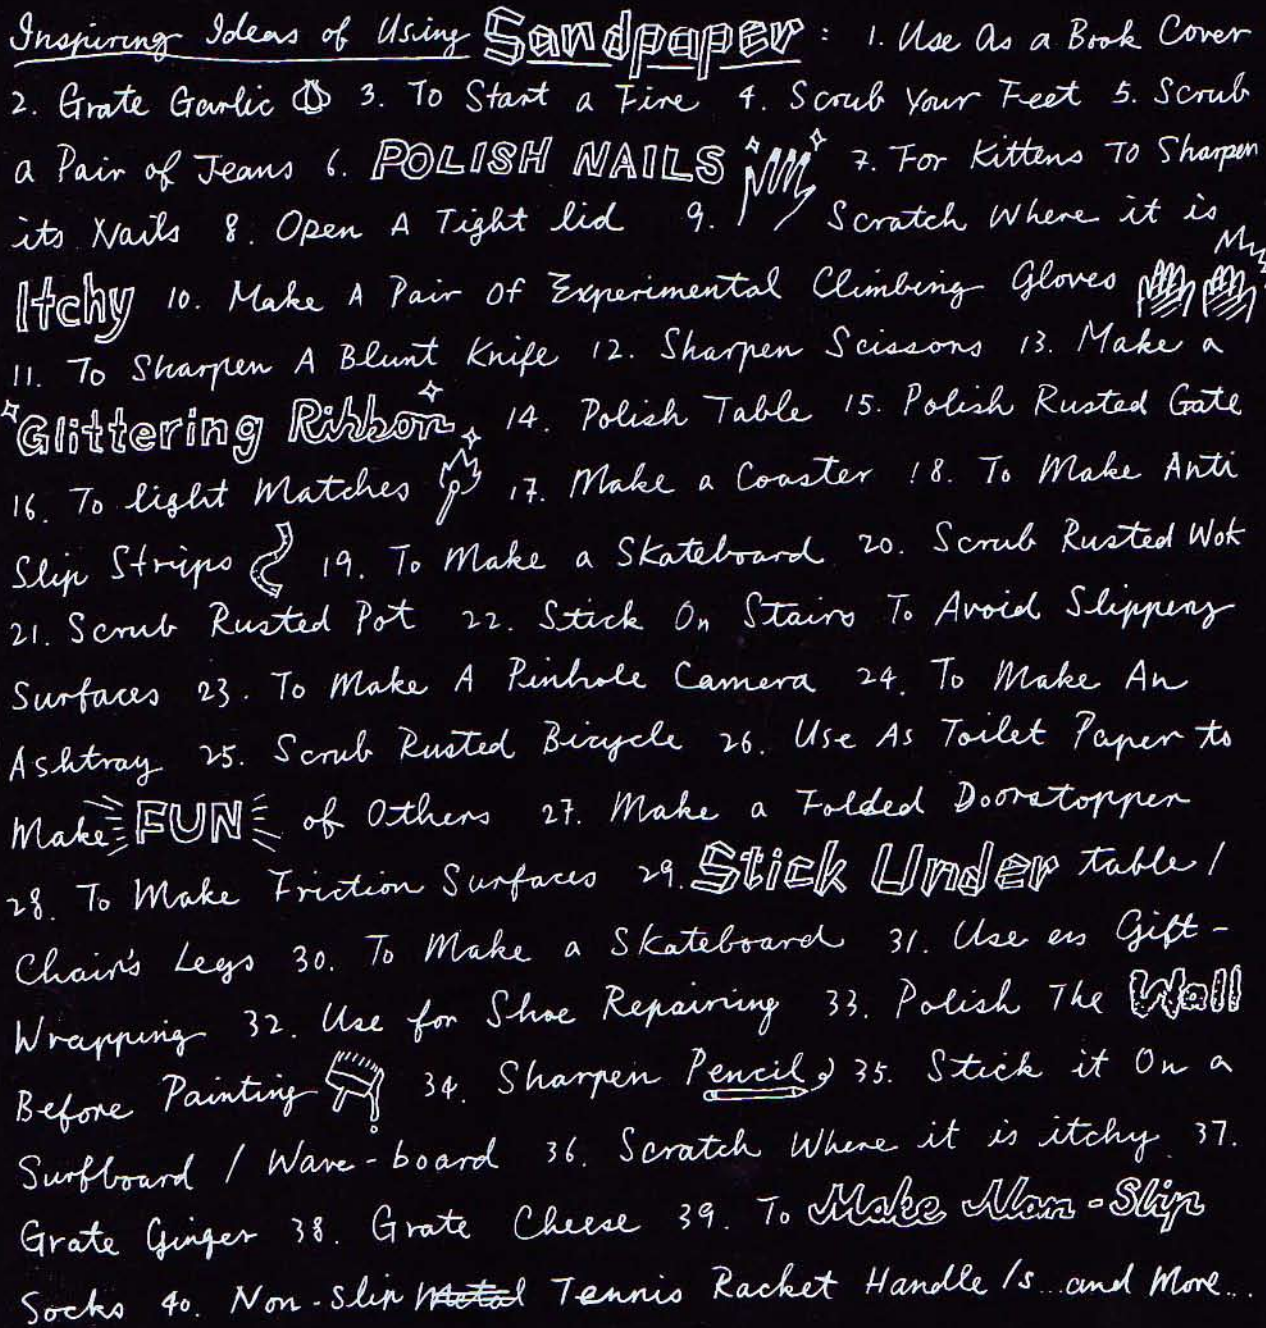 Inspiring Ideas of Using Sandpaper : 1. Use As a Book Cover
2. Grate Garlic 3. To Start a Fire 4. Scrub Your Feet 5. Scrub
a Pair of Jeans 6. POLISH NAILS 7. For Kittens To Sharpen
its Nails 8. Open A Tight lid 9. Scratch Where it is
Itchy 10. Make A Pair Of Experimental Climbing Gloves
11. To Sharpen A Blunt Knife 12. Sharpen Scissors 13. Make a
Glittering Ribbon 14. Polish Table 15. Polish Rusted Gate
16. To light Matches 17. Make a Coaster 18. To Make Anti
Slip Strips 19. To Make a Skateboard 20. Scrub Rusted Wok
21. Scrub Rusted Pot 22. Stick On Stairs To Avoid Slippery
Surfaces 23. To Make A Pinhole Camera 24. To Make An
Ashtray 25. Scrub Rusted Bicycle 26. Use As Toilet Paper to
Make FUN of Others 27. Make a Folded Doorstopper
28. To Make Friction Surfaces 29. Stick Under table /
Chair's Legs 30. To Make a Skateboard 31. Use as Gift-
Wrapping 32. Use for Shoe Repairing 33. Polish The Wall
Before Painting 34. Sharpen Pencil 35. Stick it On a
Surfboard / Wave-board 36. Scratch Where it is itchy 37.
Grate Ginger 38. Grate Cheese 39. To Make Non-Slip
Socks 40. Non-Slip Metal Tennis Racket Handle/s...and More...